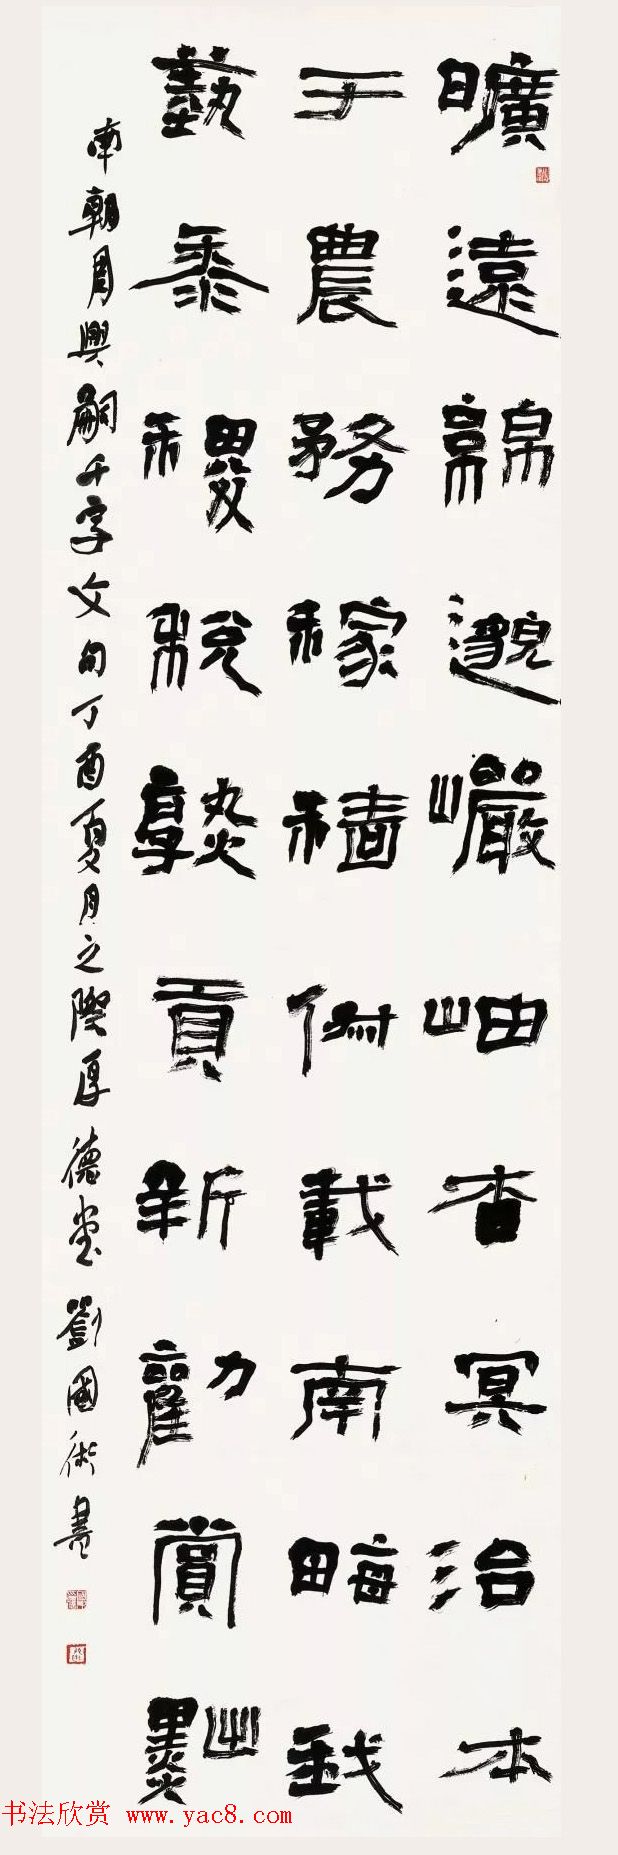 曠遠綿邈巖岫杳冥治本
于農務稼穡俶載南畮我
蓺黍稷稅熟貢新勸賞黜
南朝周興嗣千字文句丁酉夏月之際厚德堂劉國術書
书法欣赏 www.yac8.com